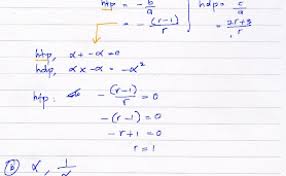 htp = -b/a
hdp = c/a
= -(r-1)/r
= 2r+3/r
htp, α + -α = 0
hdp, α x -α = -α²
htp: -(r-1)/r = 0
-(r-1) = 0
-r+1 = 0
r = 1
α, 1/α